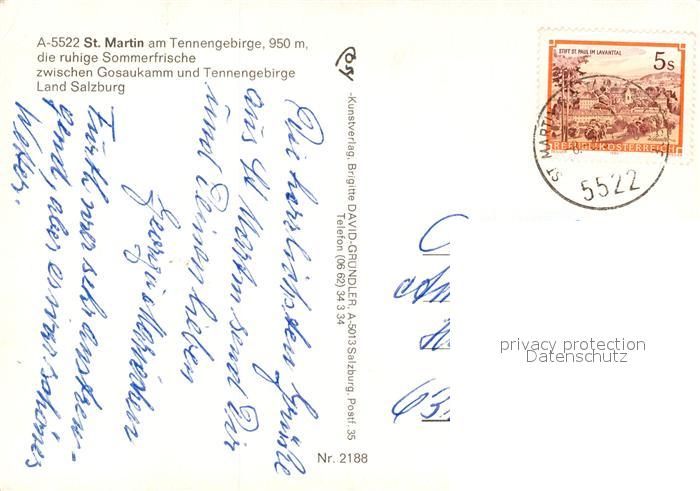 A-5522 St. Martin am Tennengebirge, 950 m,
die ruhige Sommerfrische
zwischen Gosaukamm und Tennengebirge
Land Salzburg
Die herzlichsten Grüße
aus St Martin send Dir
und Deinen lieben
Georg u Mariechen
Fürth war sehr anstren-
gend, aber es war schönes
Wetter.
Cosy
-Kunstverlag, Brigitte DAVID-GRÜNDLER A-5013 Salzburg, Postf. 35
Telefon (06 62) 34 3 34
Nr. 2188
STIFT ST. PAUL IM LAVANTTAL
5 S
REPUBLIK ÖSTERREICH
ST. MARTIN
5522
privacy protection
Datenschutz